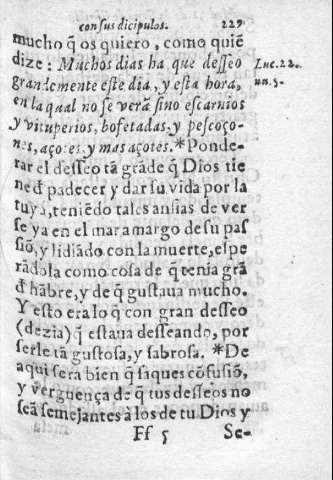 con sus dicipulos. 229
mucho q̃ os quiero, como quiẽ
dize: Muchos dias ha que desseo Luc. 22.
grandemente este dia, y esta hora, nu. 5.
en la qual no se verã sino escarnios
y vituperios, bofetadas, y pescoço-
nes, açotes, y mas açotes. *Ponde-
rar el desseo tã grãde q̃ Dios tie
ne đ padecer y dar su vida por la
tuya, teniẽdo tales ansias de ver
se ya en el mar amargo de su pas
siõ, y lidiãdo con la muerte, espe
rãdola como cosa de q̃ tenia grã
đ hãbre, y de q̃ gustaua mucho.
Y esto era lo q̃ con gran desseo
(dezia) q̃ estaua desseando, por
serle tã gustosa, y sabrosa. *De
aqui sera bien q̃ saques cõfusiõ,
y verguença de q̃ tus desseos no
seã semejantes à los de tu Dios y
Ff 5 Se-